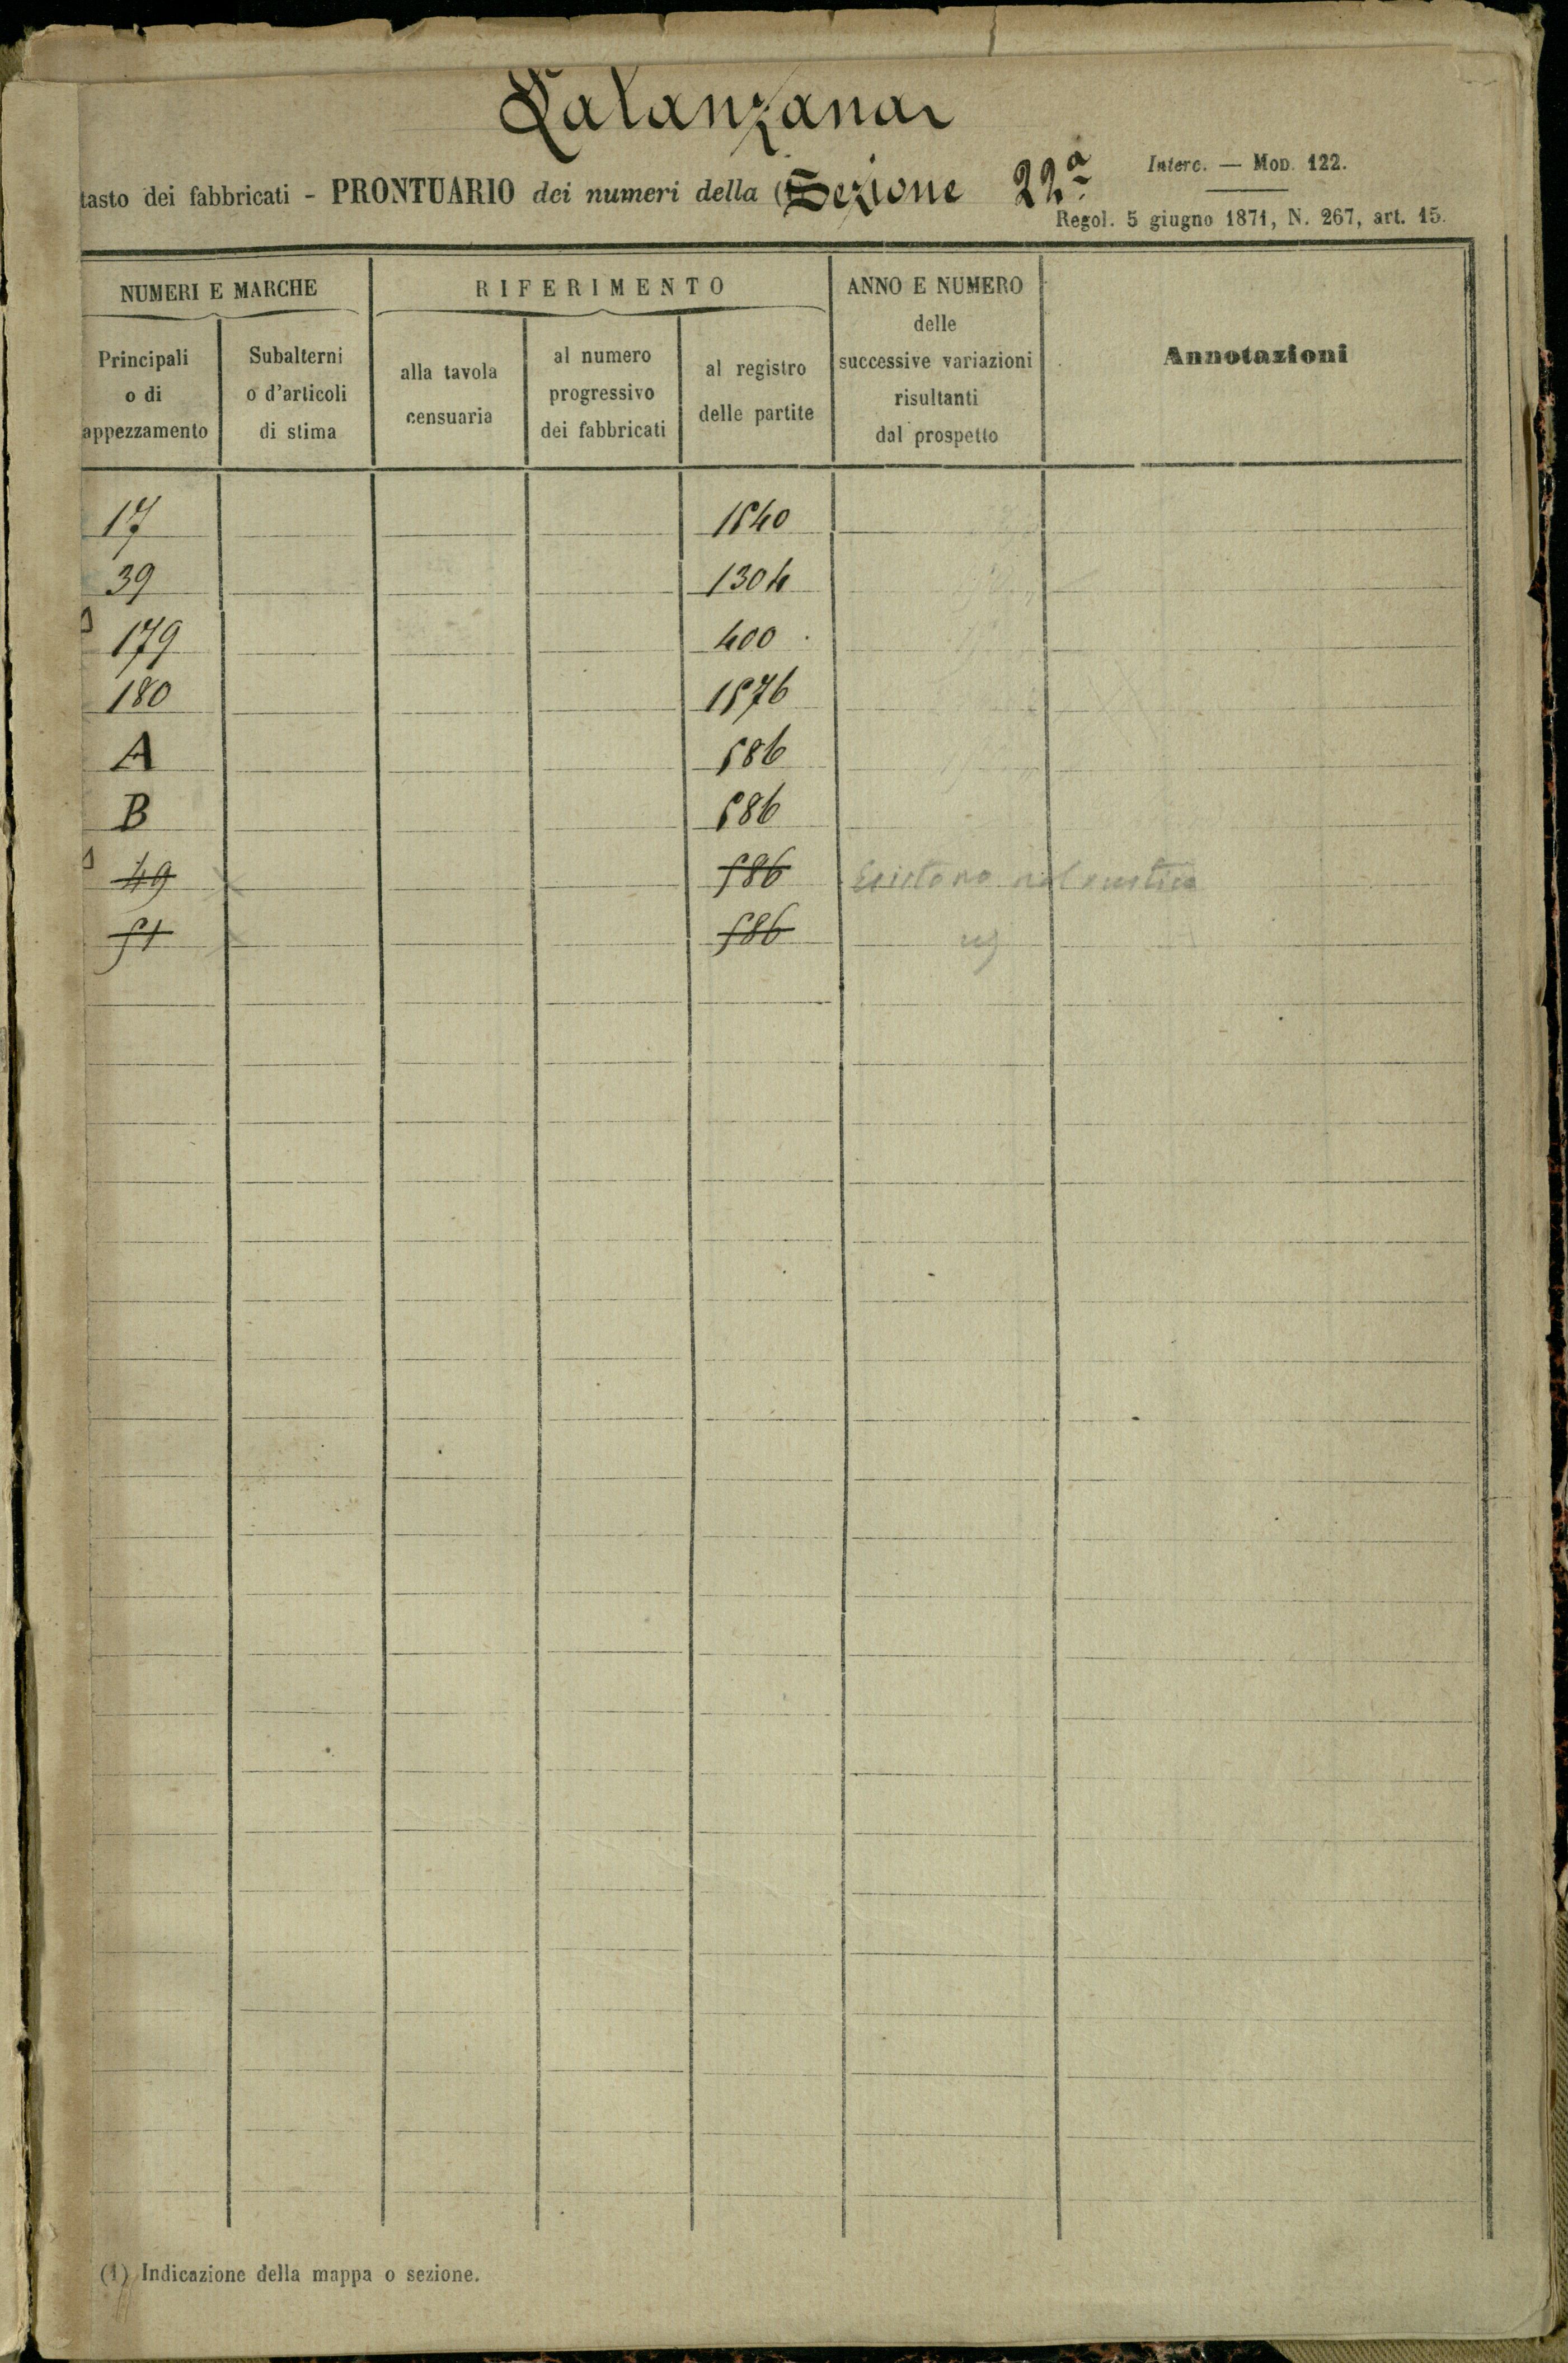 Lalanzana
tasto dei fabbricati - PRONTUARIO dei numeri della (Sezione 22ª
Interc. — Mod. 122.
Regol. 5 giugno 1871, N. 267, art. 15.
NUMERI E MARCHE
RIFERIMENTO
ANNO E NUMERO
delle
successive variazioni
risultanti
dal prospetto
Annotazioni
Principali
o di
appezzamento
Subalterni
o d'articoli
di stima
alla tavola
censuaria
al numero
progressivo
dei fabbricati
al registro
delle partite
17 1540
39 1304
179 400
180 1576
A 586
B 586
49 586 Esistono nel rustico
51 586
(1) Indicazione della mappa o sezione.